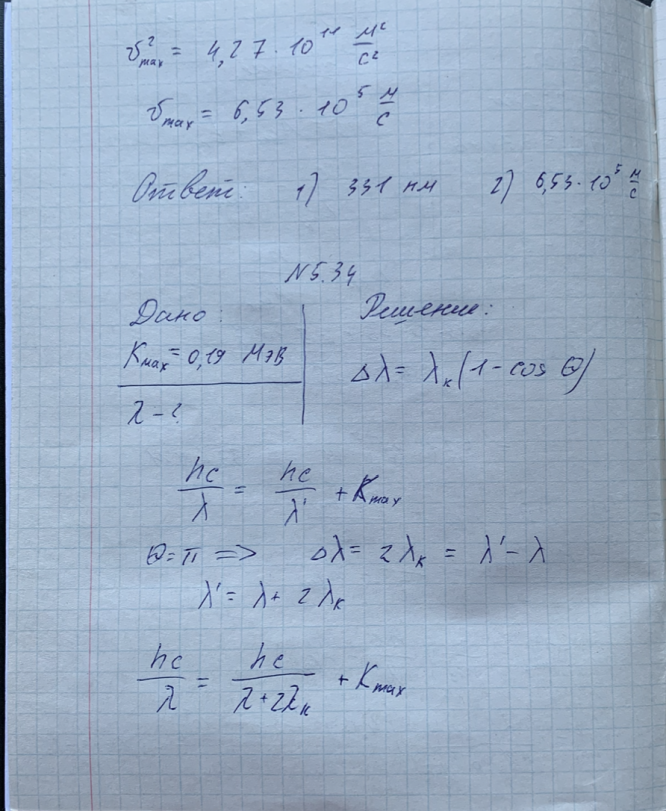 υ²max = 4,27 · 10¹¹ м²/с²
υmax = 6,53 · 10⁵ м/с
Ответ: 1) 331 нм 2) 6,53 · 10⁵ м/с
N5.34
Дано: Решение:
Kmax = 0,19 МэВ Δλ = λк(1 - cos θ)
λ - ?
hc/λ = hc/λ' + Kmax
θ = π => Δλ = 2λк = λ' - λ
λ' = λ + 2λк
hc/λ = hc/(λ + 2λк) + Kmax